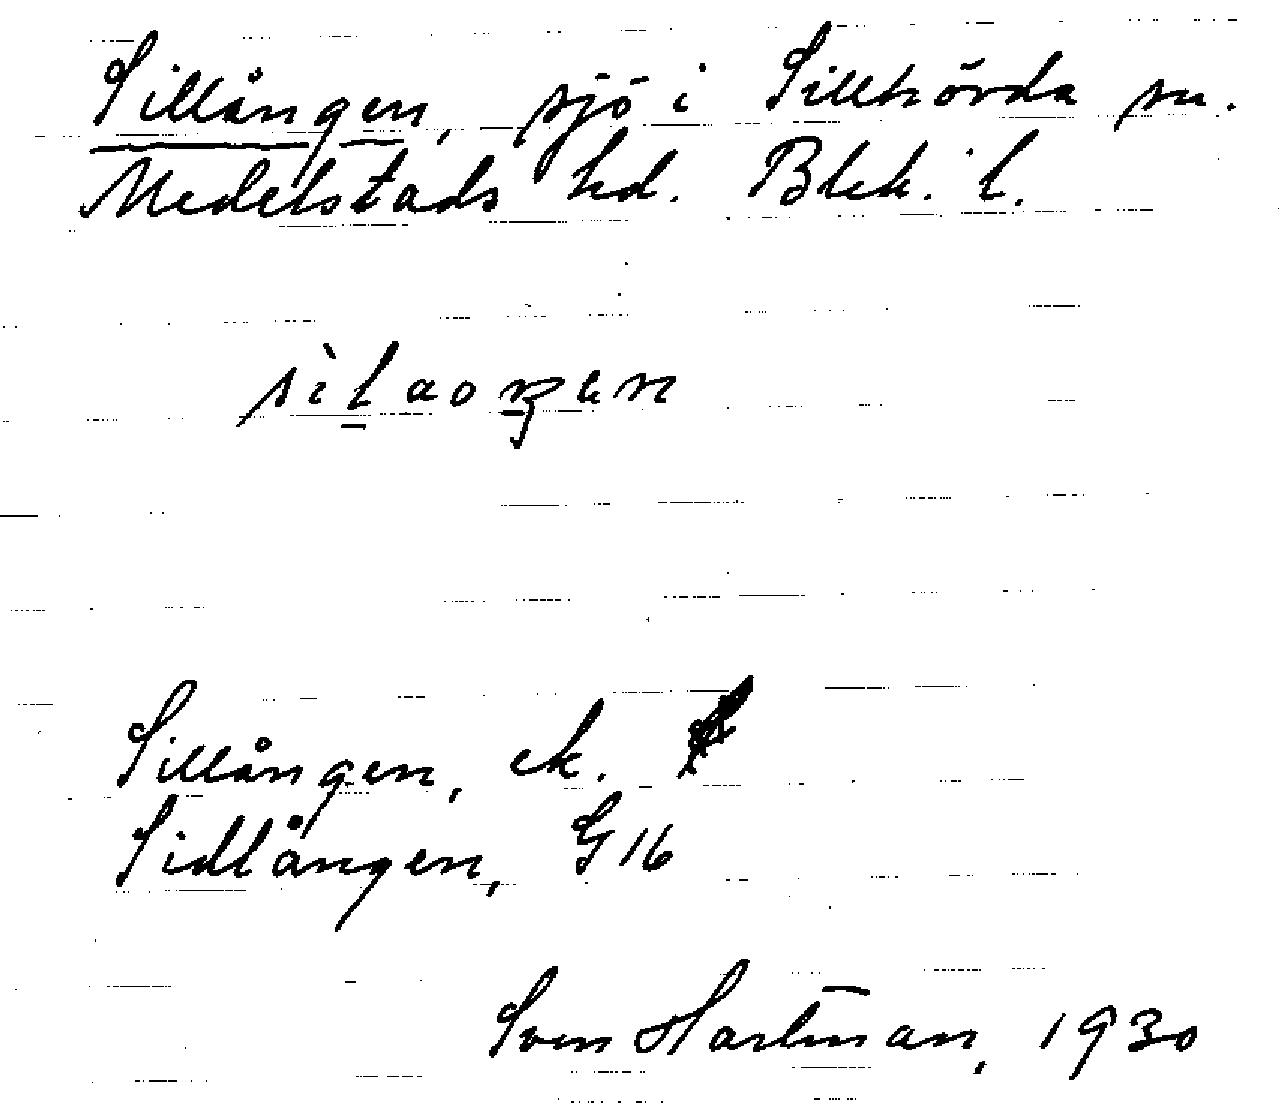 Sillången, sjö i Sillhövda sn.
Medelstads hd. Blek. l.
sìlaoŋen
Sillången, ek.
Sidlången, G16
Sven Hartman, 1930